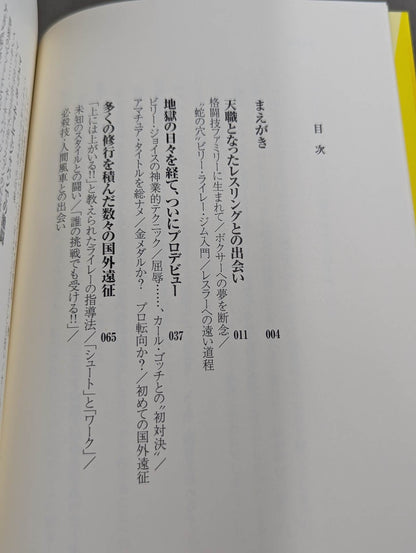 目次
まえがき 004
天職となったレスリングとの出会い 011
格闘技ファミリーに生まれて／ボクサーへの夢を断念／
“蛇の穴”ビリー・ライレー・ジム入門／レスラーへの遠い道程
地獄の日々を経て、ついにプロデビュー 037
ビリー・ジョイスの神業的テクニック／屈辱……、カール・ゴッチとの“初対決”／
アマチュア・タイトルを総ナメ／金メダルか？　プロ転向か？／初めての国外遠征
多くの修行を積んだ数々の国外遠征 065
「上には上がいる!!」と教えられたライレーの指導法／「シュート」と「ワーク」／
未知のスタイルとの闘い／「誰の挑戦でも受ける!!」／
必殺技・人間風車との出会い